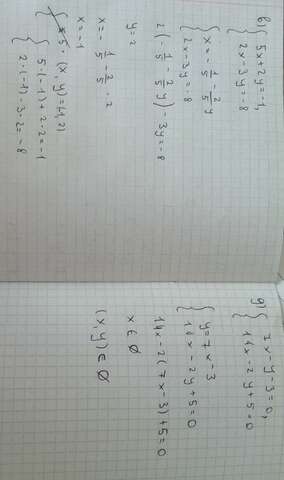 в) { 5x + 2y = -1,
2x - 3y = -8
{ x = - 1/5 - 2/5 y
2x - 3y = -8
2(- 1/5 - 2/5 y) - 3y = -8
y = 2
x = - 1/5 - 2/5 · 2
x = -1
(x, y) = (-1, 2)
{ 5 · (-1) + 2 · 2 = -1
2 · (-1) - 3 · 2 = -8
g) { 7x - y - 3 = 0,
14x - 2y + 5 = 0
{ y = 7x - 3
14x - 2y + 5 = 0
14x - 2(7x - 3) + 5 = 0
x ∈ ∅
(x, y) ∈ ∅